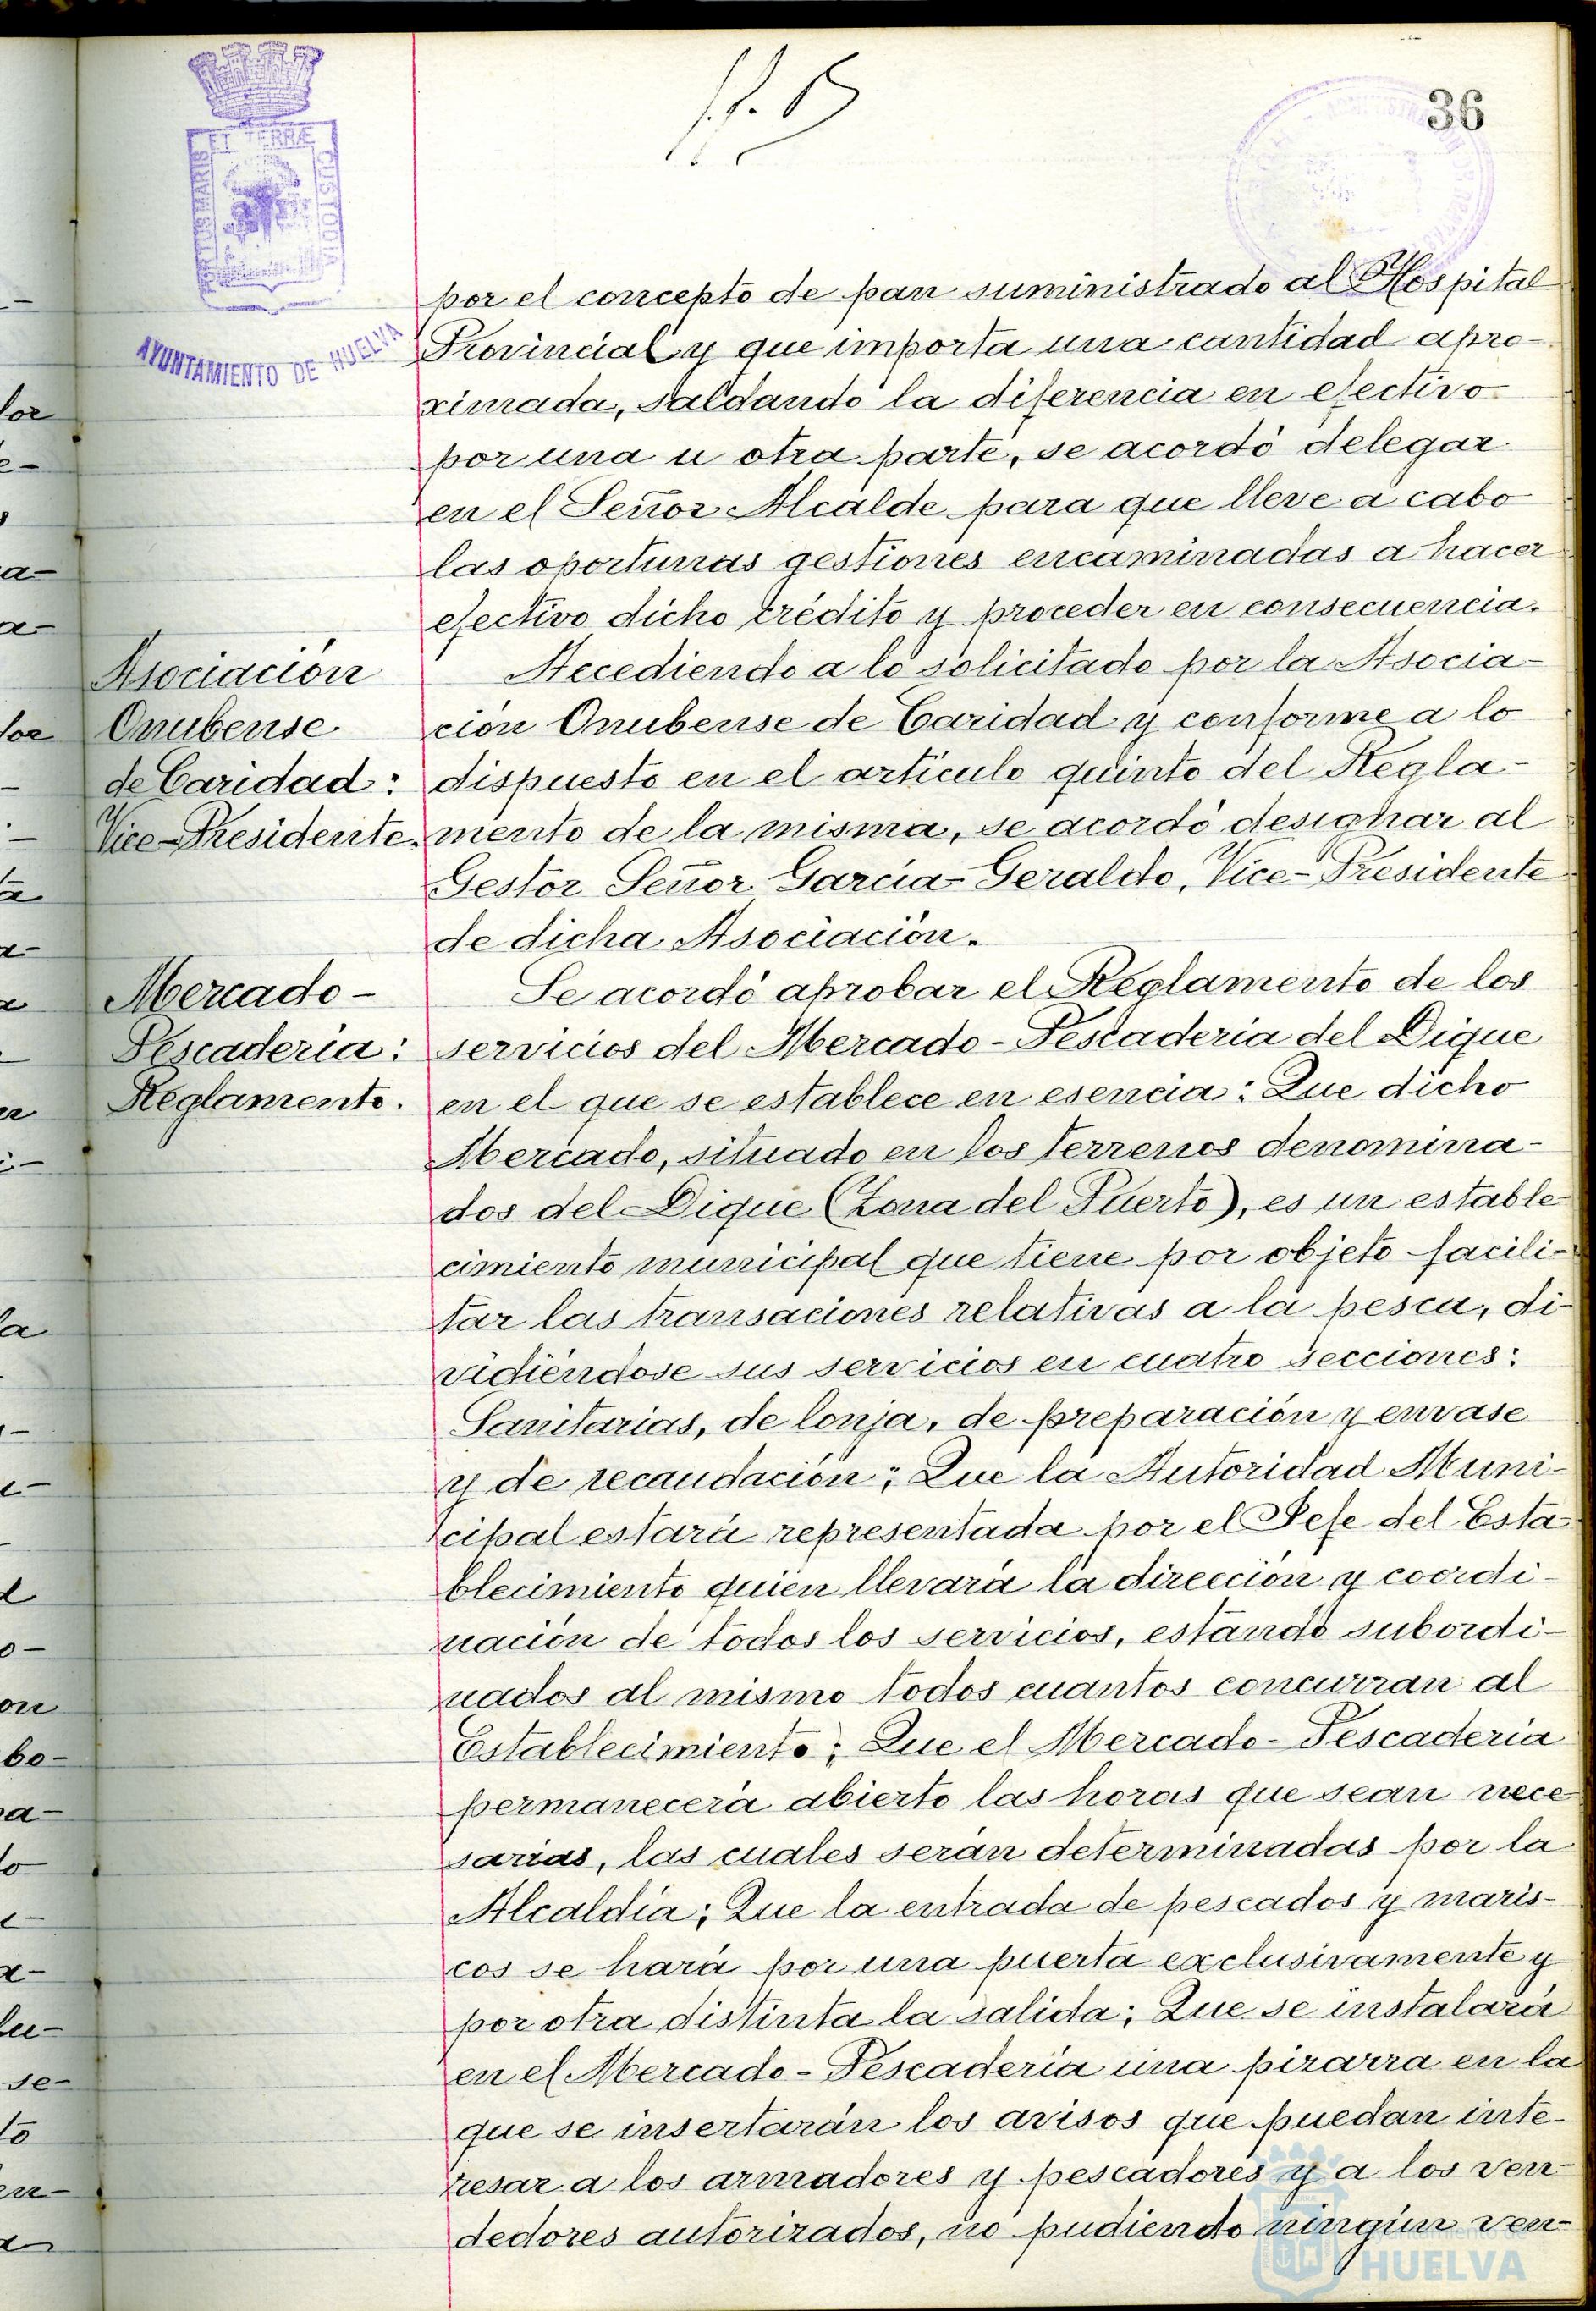 36
ET TERRÆ
PORTUS MARIS
CUSTODIA
AYUNTAMIENTO DE HUELVA
por el concepto de pan suministrado al Hospital
Provincial y que importa una cantidad apro-
ximada, saldando la diferencia en efectivo
por una u otra parte, se acordó delegar
en el Señor Alcalde para que lleve a cabo
las oportunas gestiones encaminadas a hacer
efectivo dicho crédito y proceder en consecuencia.
Asociación
Onubense
de Caridad:
Vice-Presidente.
Accediendo a lo solicitado por la Asocia-
ción Onubense de Caridad y conforme a lo
dispuesto en el artículo quinto del Regla-
mento de la misma, se acordó designar al
Gestor Señor García-Geraldo, Vice-Presidente
de dicha Asociación.
Mercado-
Pescadería:
Reglamento.
Se acordó aprobar el Reglamento de los
servicios del Mercado-Pescadería del Dique
en el que se establece en esencia: Que dicho
Mercado, situado en los terrenos denomina-
dos del Dique (Zona del Puerto), es un estable
cimiento municipal que tiene por objeto facili-
tar las transaciones relativas a la pesca, di-
vidiéndose sus servicios en cuatro secciones:
Sanitarias, de lonja, de preparación y envase
y de recaudación; Que la Autoridad Muni-
cipal estará representada por el Jefe del Esta
blecimiento quien llevará la dirección y coordi-
nación de todos los servicios, estando subordi-
nados al mismo todos cuantos concurran al
Establecimiento; Que el Mercado-Pescadería
permanecerá abierto las horas que sean nece
sarias, las cuales serán determinadas por la
Alcaldía; Que la entrada de pescados y maris-
cos se hará por una puerta exclusivamente y
por otra distinta la salida; Que se instalará
en el Mercado-Pescadería una pizarra en la
que se insertarán los avisos que puedan inte-
resar a los armadores y pescadores y a los ven-
dedores autorizados, no pudiendo ningún ven-
HUELVA